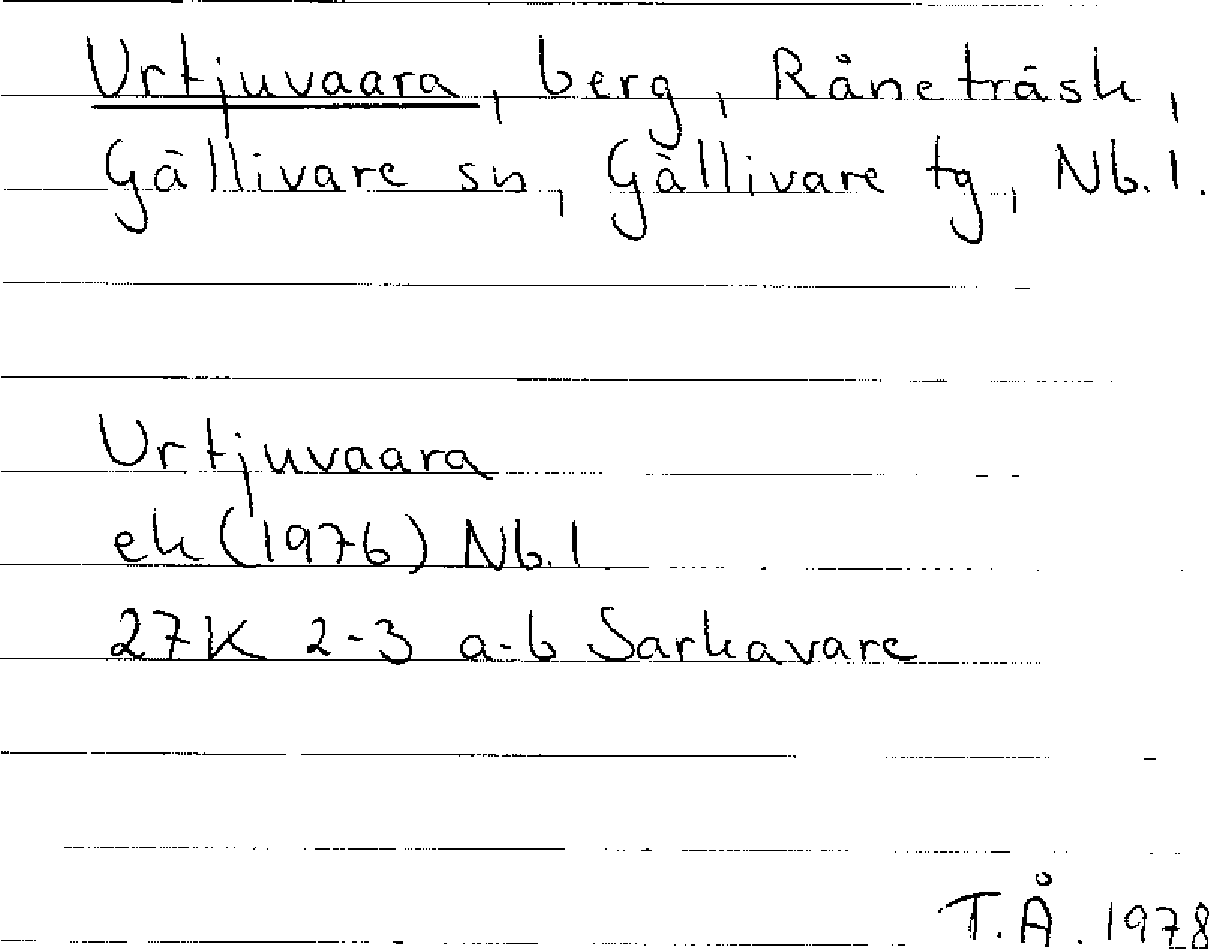 Urtjuvaara, berg, Råneträsk,
Gällivare sn, Gällivare tg, Nb.l.
Urtjuvaara
ek (1976) Nb.l
27K 2-3 a-b Sarkavare
T.Å. 1978